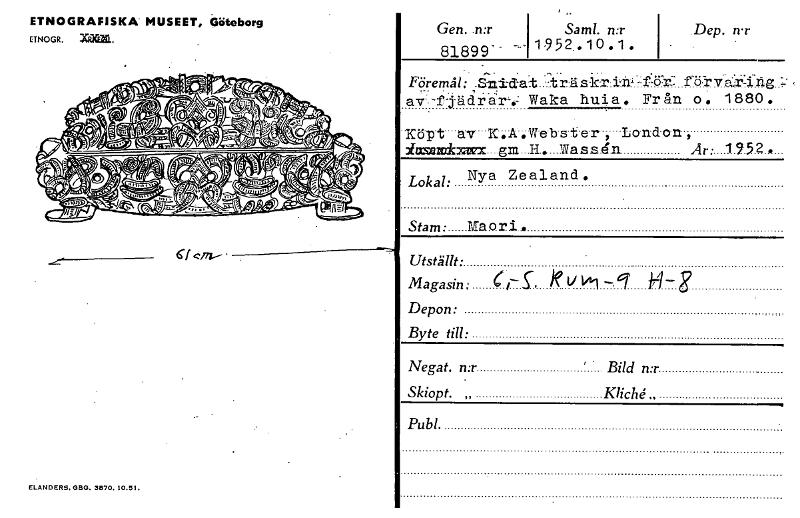 ETNOGRAFISKA MUSEET, Göteborg
ETNOGR.
61 cm
ELANDERS, GBG. 3870, 10.51.
Gen. n:r Saml. n:r Dep. n:r
81899 1952.10.1.
Föremål: Snidat träskrin för förvaring
av fjädrar. Waka huia. Från o. 1880.
Köpt av K.A.Webster, London,
gm H. Wassén År: 1952.
Lokal: Nya Zealand.
Stam: Maori.
Utställt:
Magasin: 6,-5. Rum-9 H-8
Depon:
Byte till:
Negat. n:r Bild n:r
Skiopt. „ Kliché „
Publ.